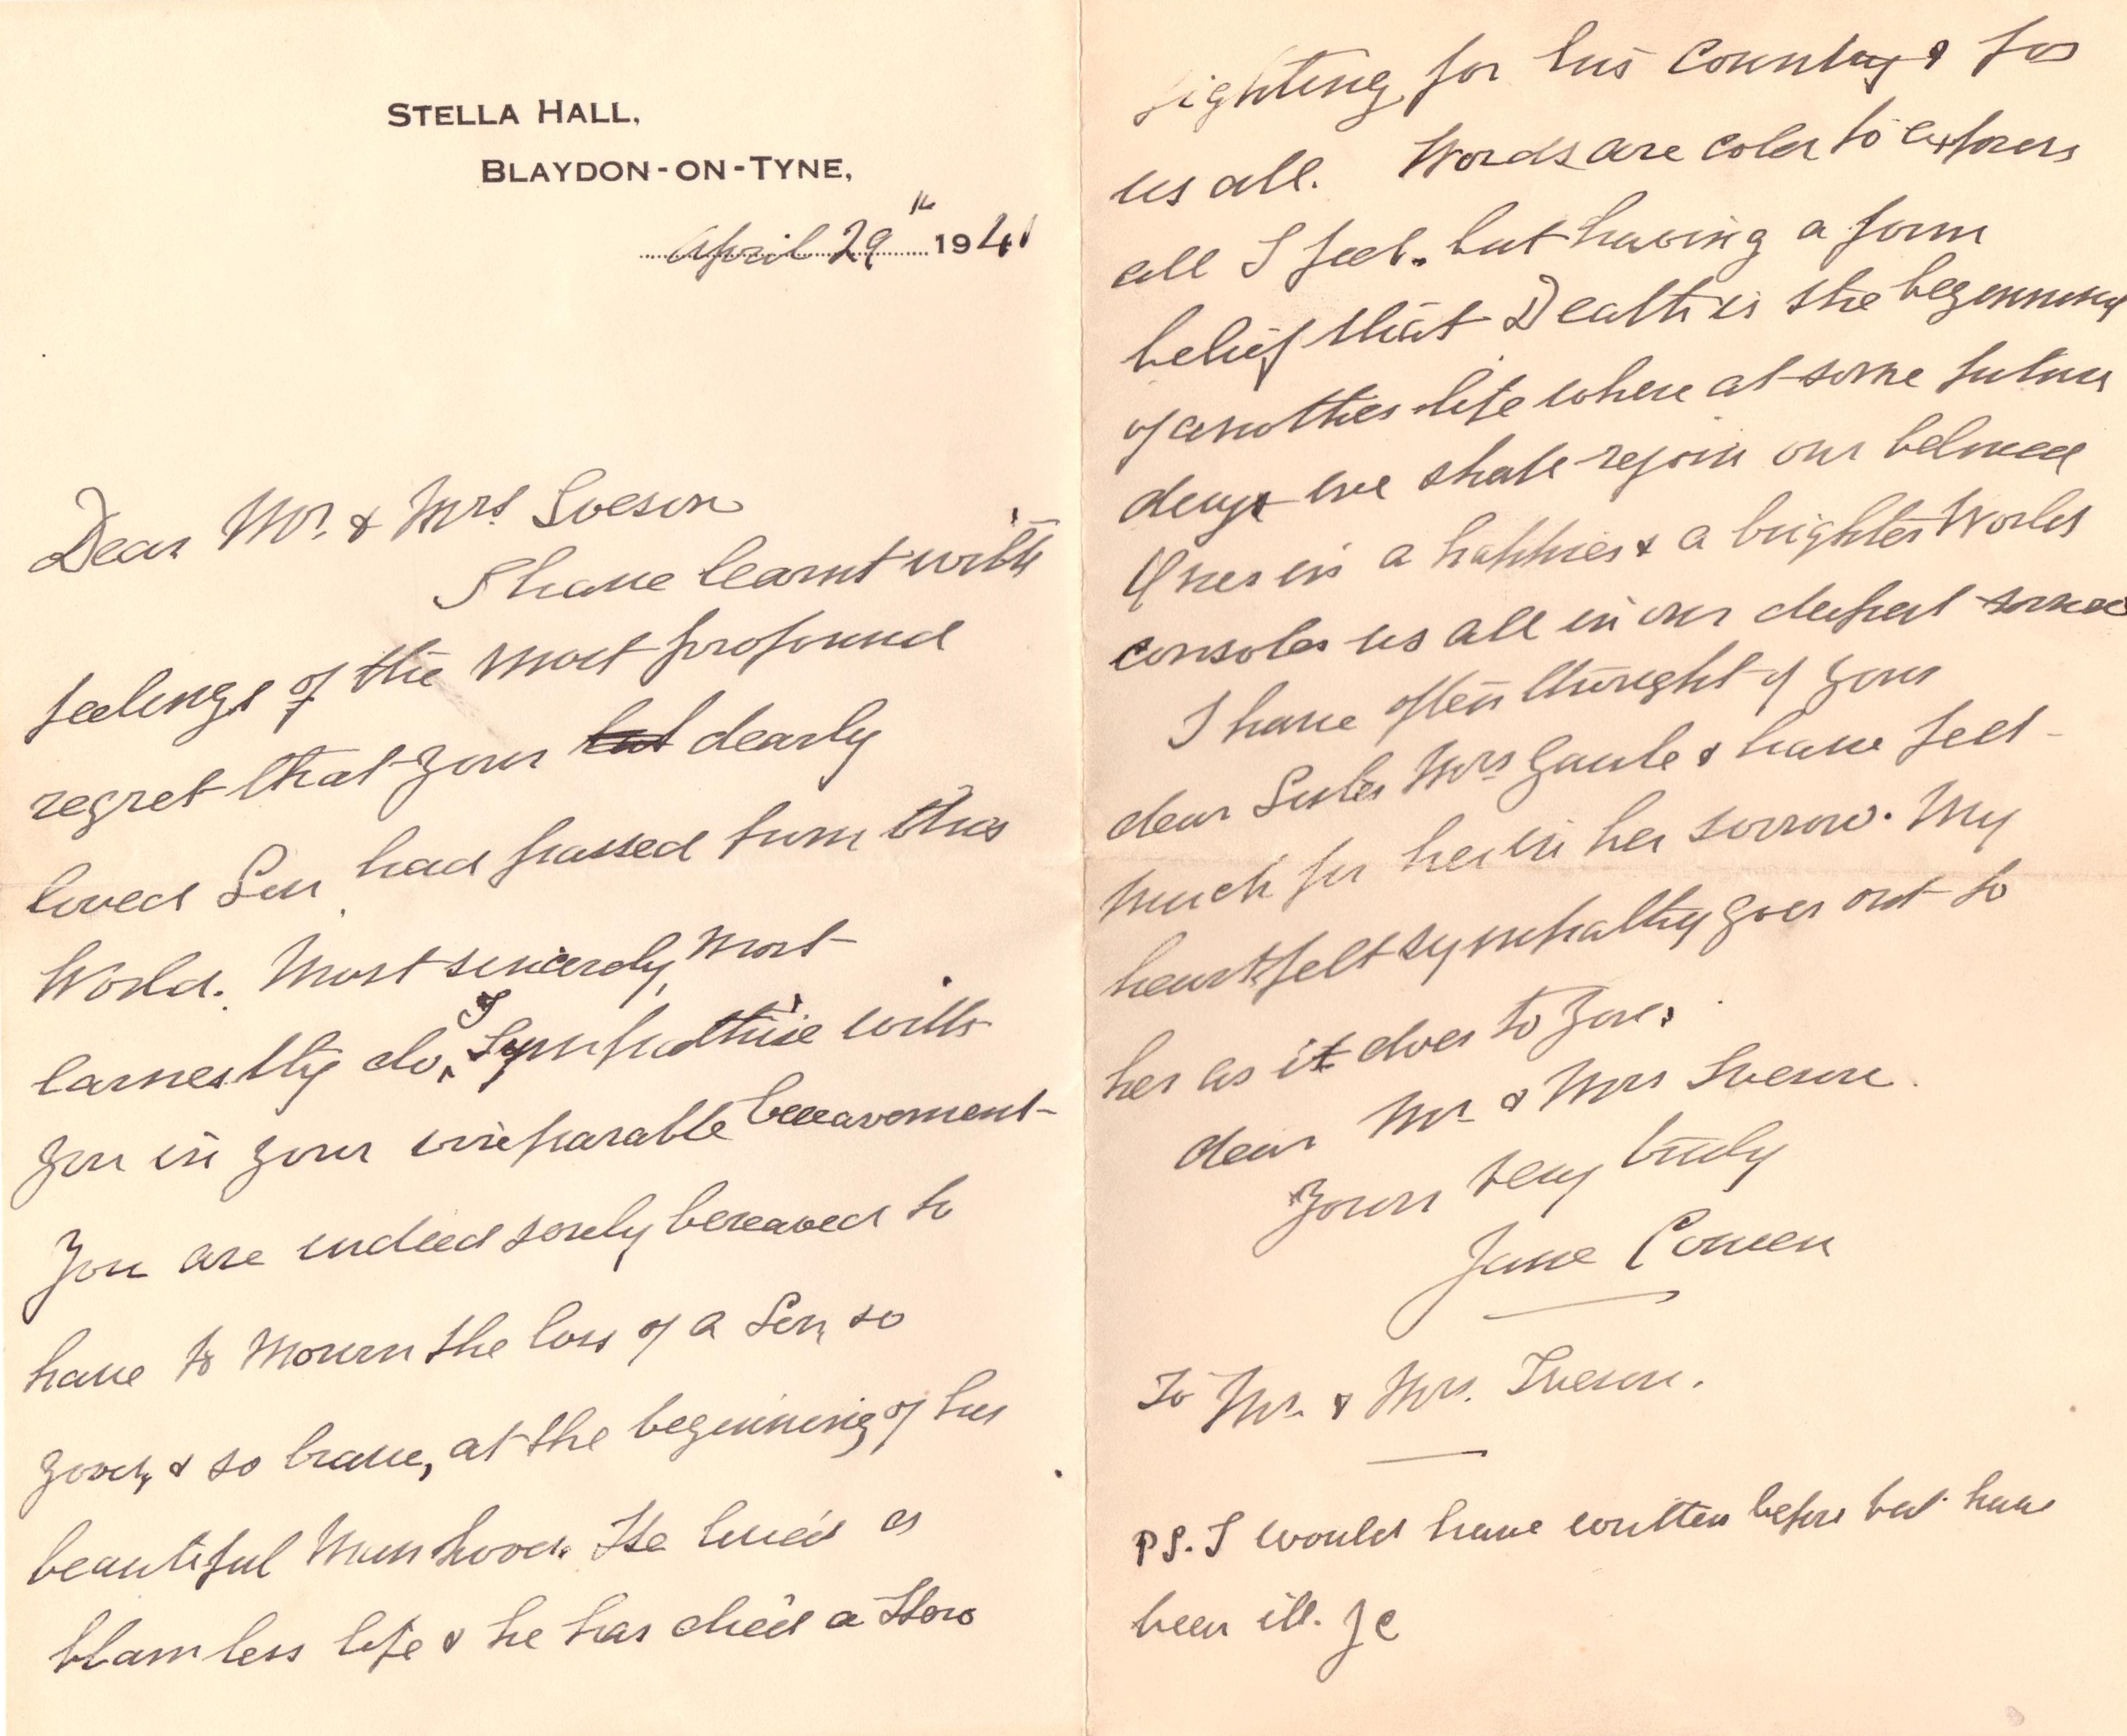 STELLA HALL,
BLAYDON-ON-TYNE,
April 29th 1941
Dear Mr. & Mrs Iveson
I have learnt with
feelings of the most profound
regret that your dearly
loved Son had passed from this
World. Most sincerely, most
earnestly do I Sympathise with
you in your irreparable bereavement
You are indeed sorely bereaved to
have to Mourn the loss of a Son, so
good, & so brave, at the beginning of his
beautiful Manhood. He lived a
blamless life & he has died a Hero
fighting for his Country & for
us all. Words are cold to express
all I feel. but having a firm
belief that Death is the beginning
of another life where at some future
day we shall rejoin our beloved
Ones in a happier & a brighter World
consoles us all in our deepest sorrow
I have often thought of your
dear Sister Mrs & have felt
much for her in her sorrow. My
heartfelt sympathy goes out to
her as it does to you.
dear Mr. & Mrs Iveson.
Yours very truly
Jane Cowen
To Mr. & Mrs. Iveson.
PS. I would have written before but have
been ill. JC